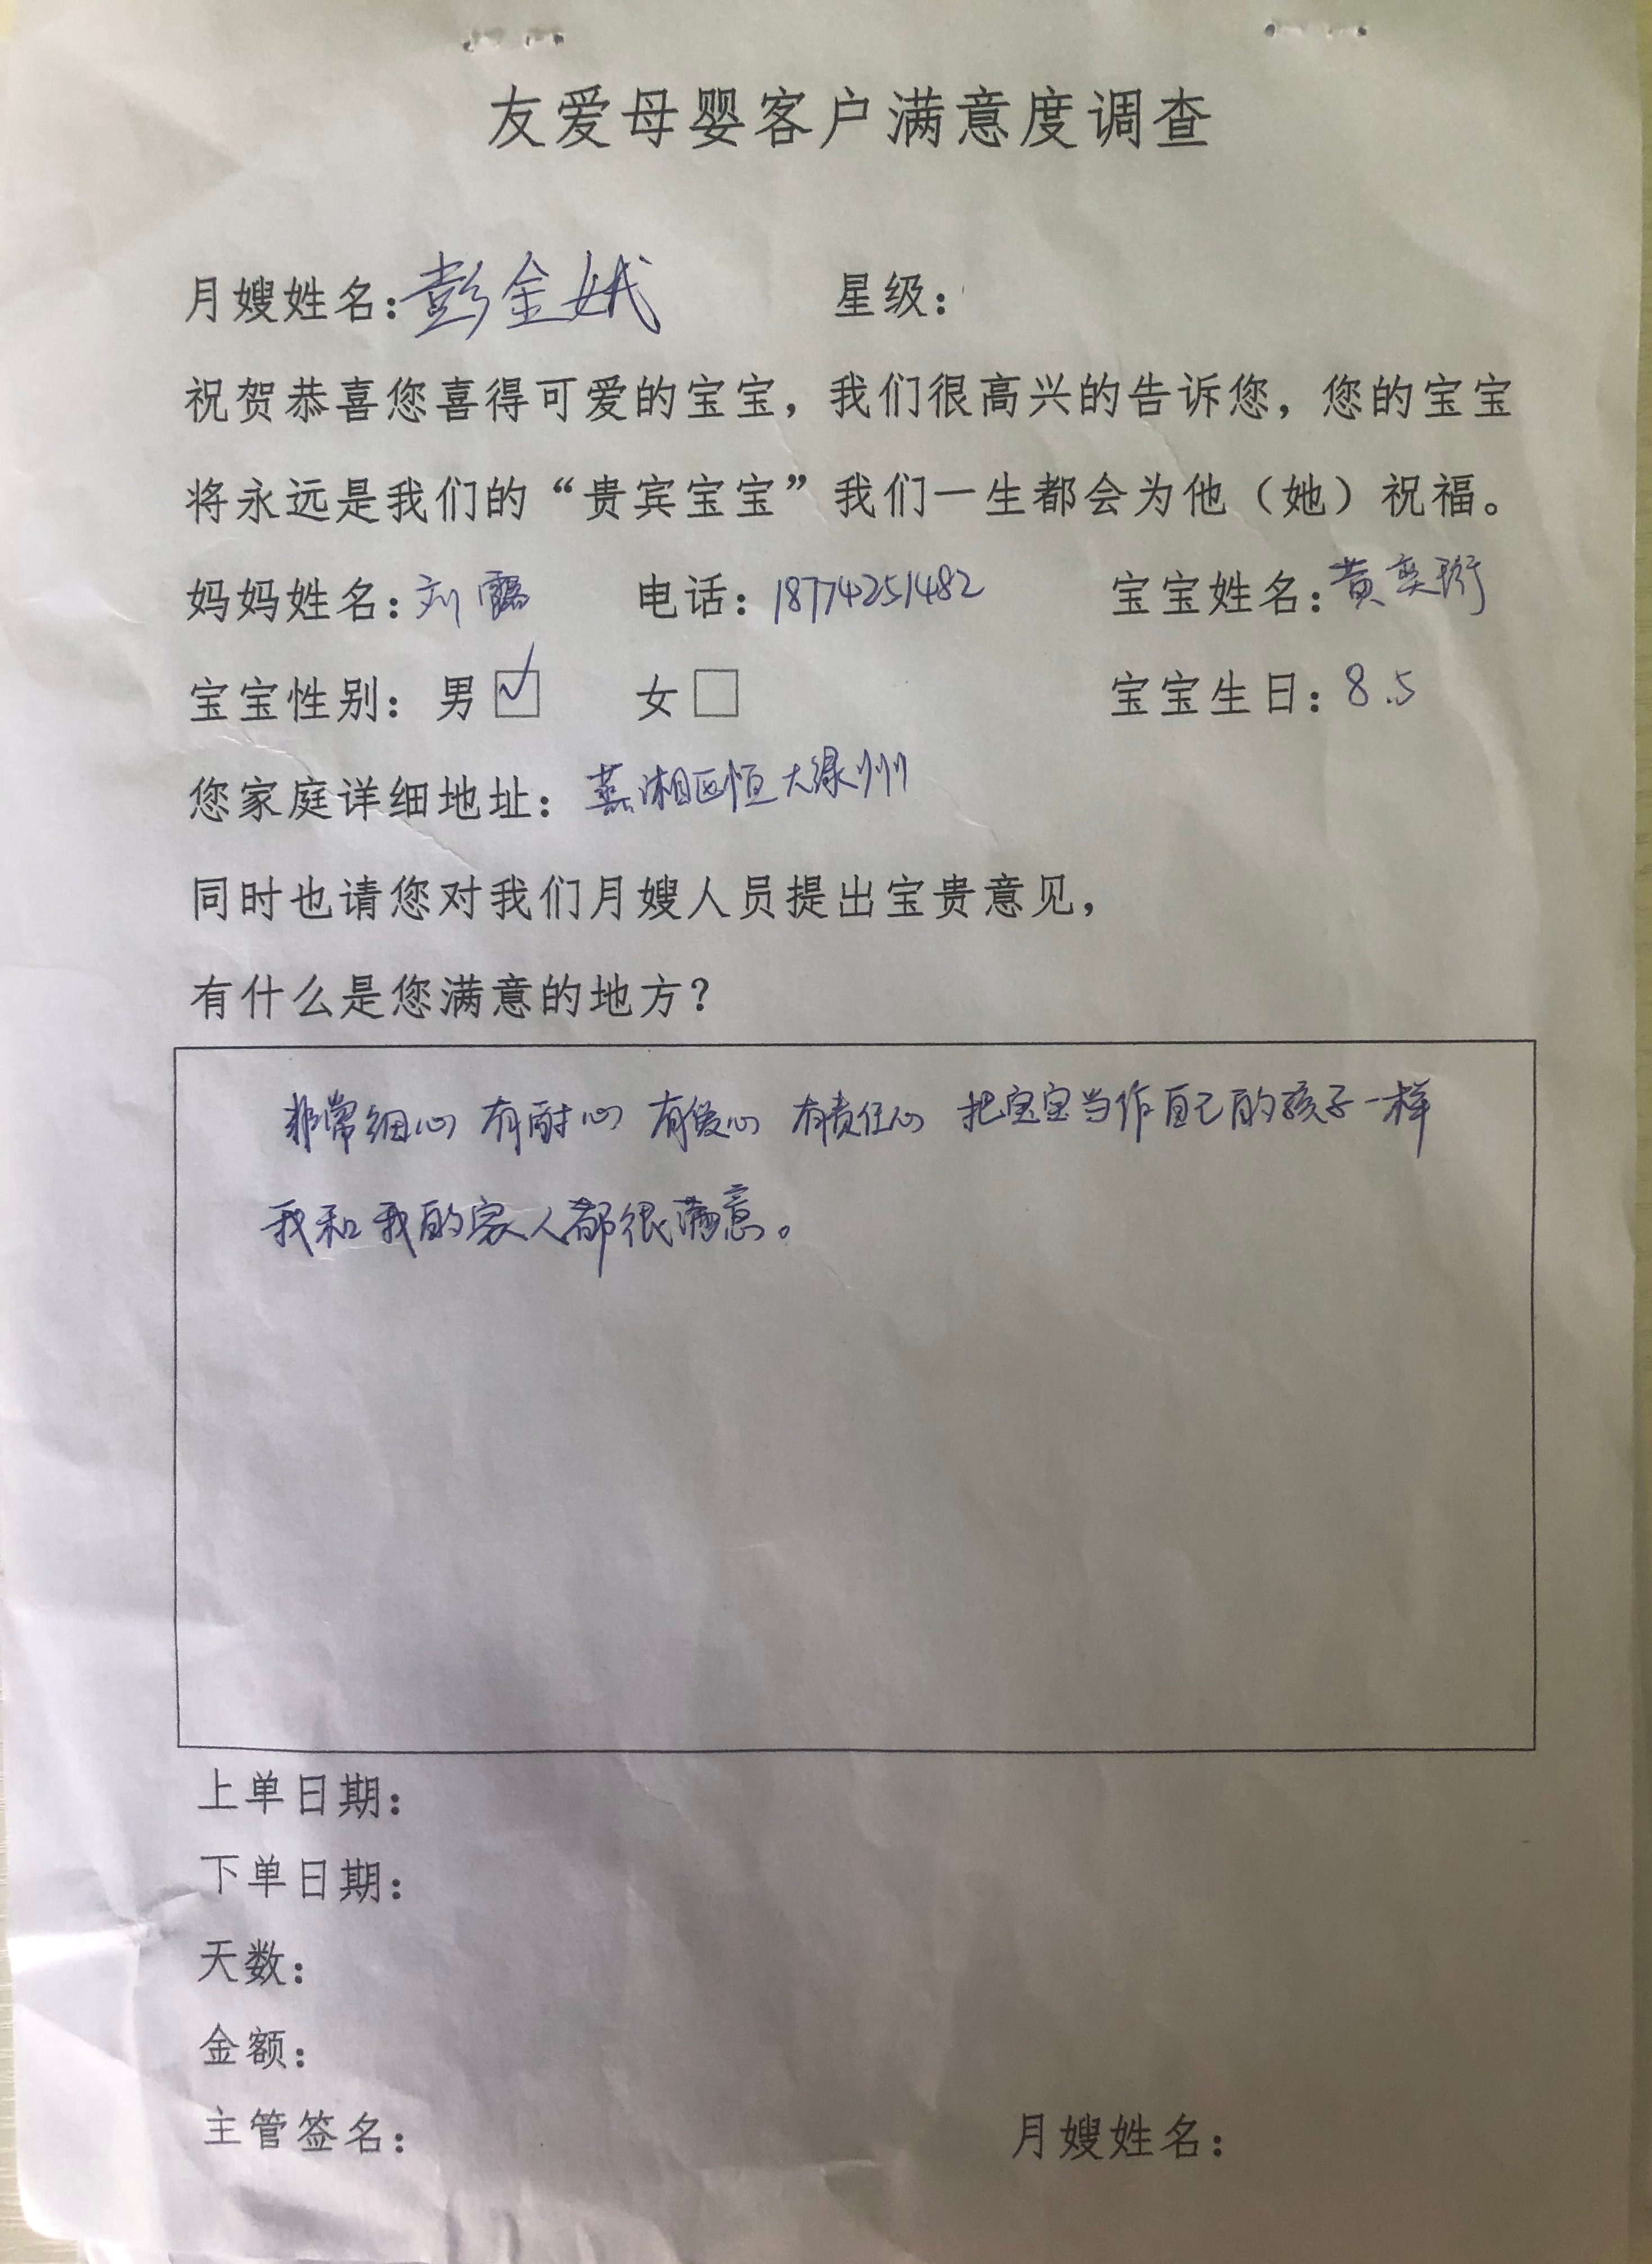 友爱母婴客户满意度调查
月嫂姓名：彭金娥 星级：
祝贺恭喜您喜得可爱的宝宝，我们很高兴的告诉您，您的宝宝
将永远是我们的“贵宾宝宝”我们一生都会为他（她）祝福。
妈妈姓名：刘霭 电话：18774251482 宝宝姓名：黄奕珩
宝宝性别：男☑ 女□ 宝宝生日：8.5
您家庭详细地址：蒸湘区恒大绿洲
同时也请您对我们月嫂人员提出宝贵意见，
有什么是您满意的地方？
非常细心 有耐心 有爱心 有责任心 把宝宝当作自己的孩子一样
我和我的家人都很满意。
上单日期：
下单日期：
天数：
金额：
主管签名： 月嫂姓名：